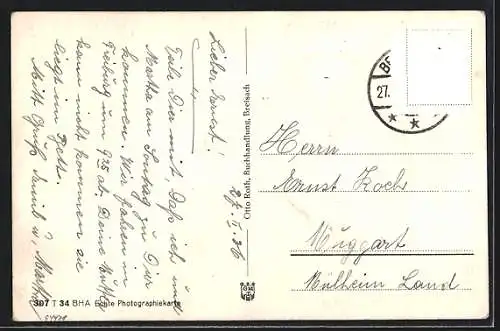 27. I. 36
Lieber Ernst!
Teile Dir mit, daß ich und
Martha am Sonntag zu Dir
kommen. Wir fahren in
Freiburg um 9.25 ab. Deine Mutter
kann nicht kommen sie
liegt im Bett.
Mit Gruß Emil u. Martha
307 T 34 BHA Echte Photographiekarte
Otto Roth, Buchhandlung, Breisach
27.
Herrn
Ernst Koch
Muggart
Mülheim Land